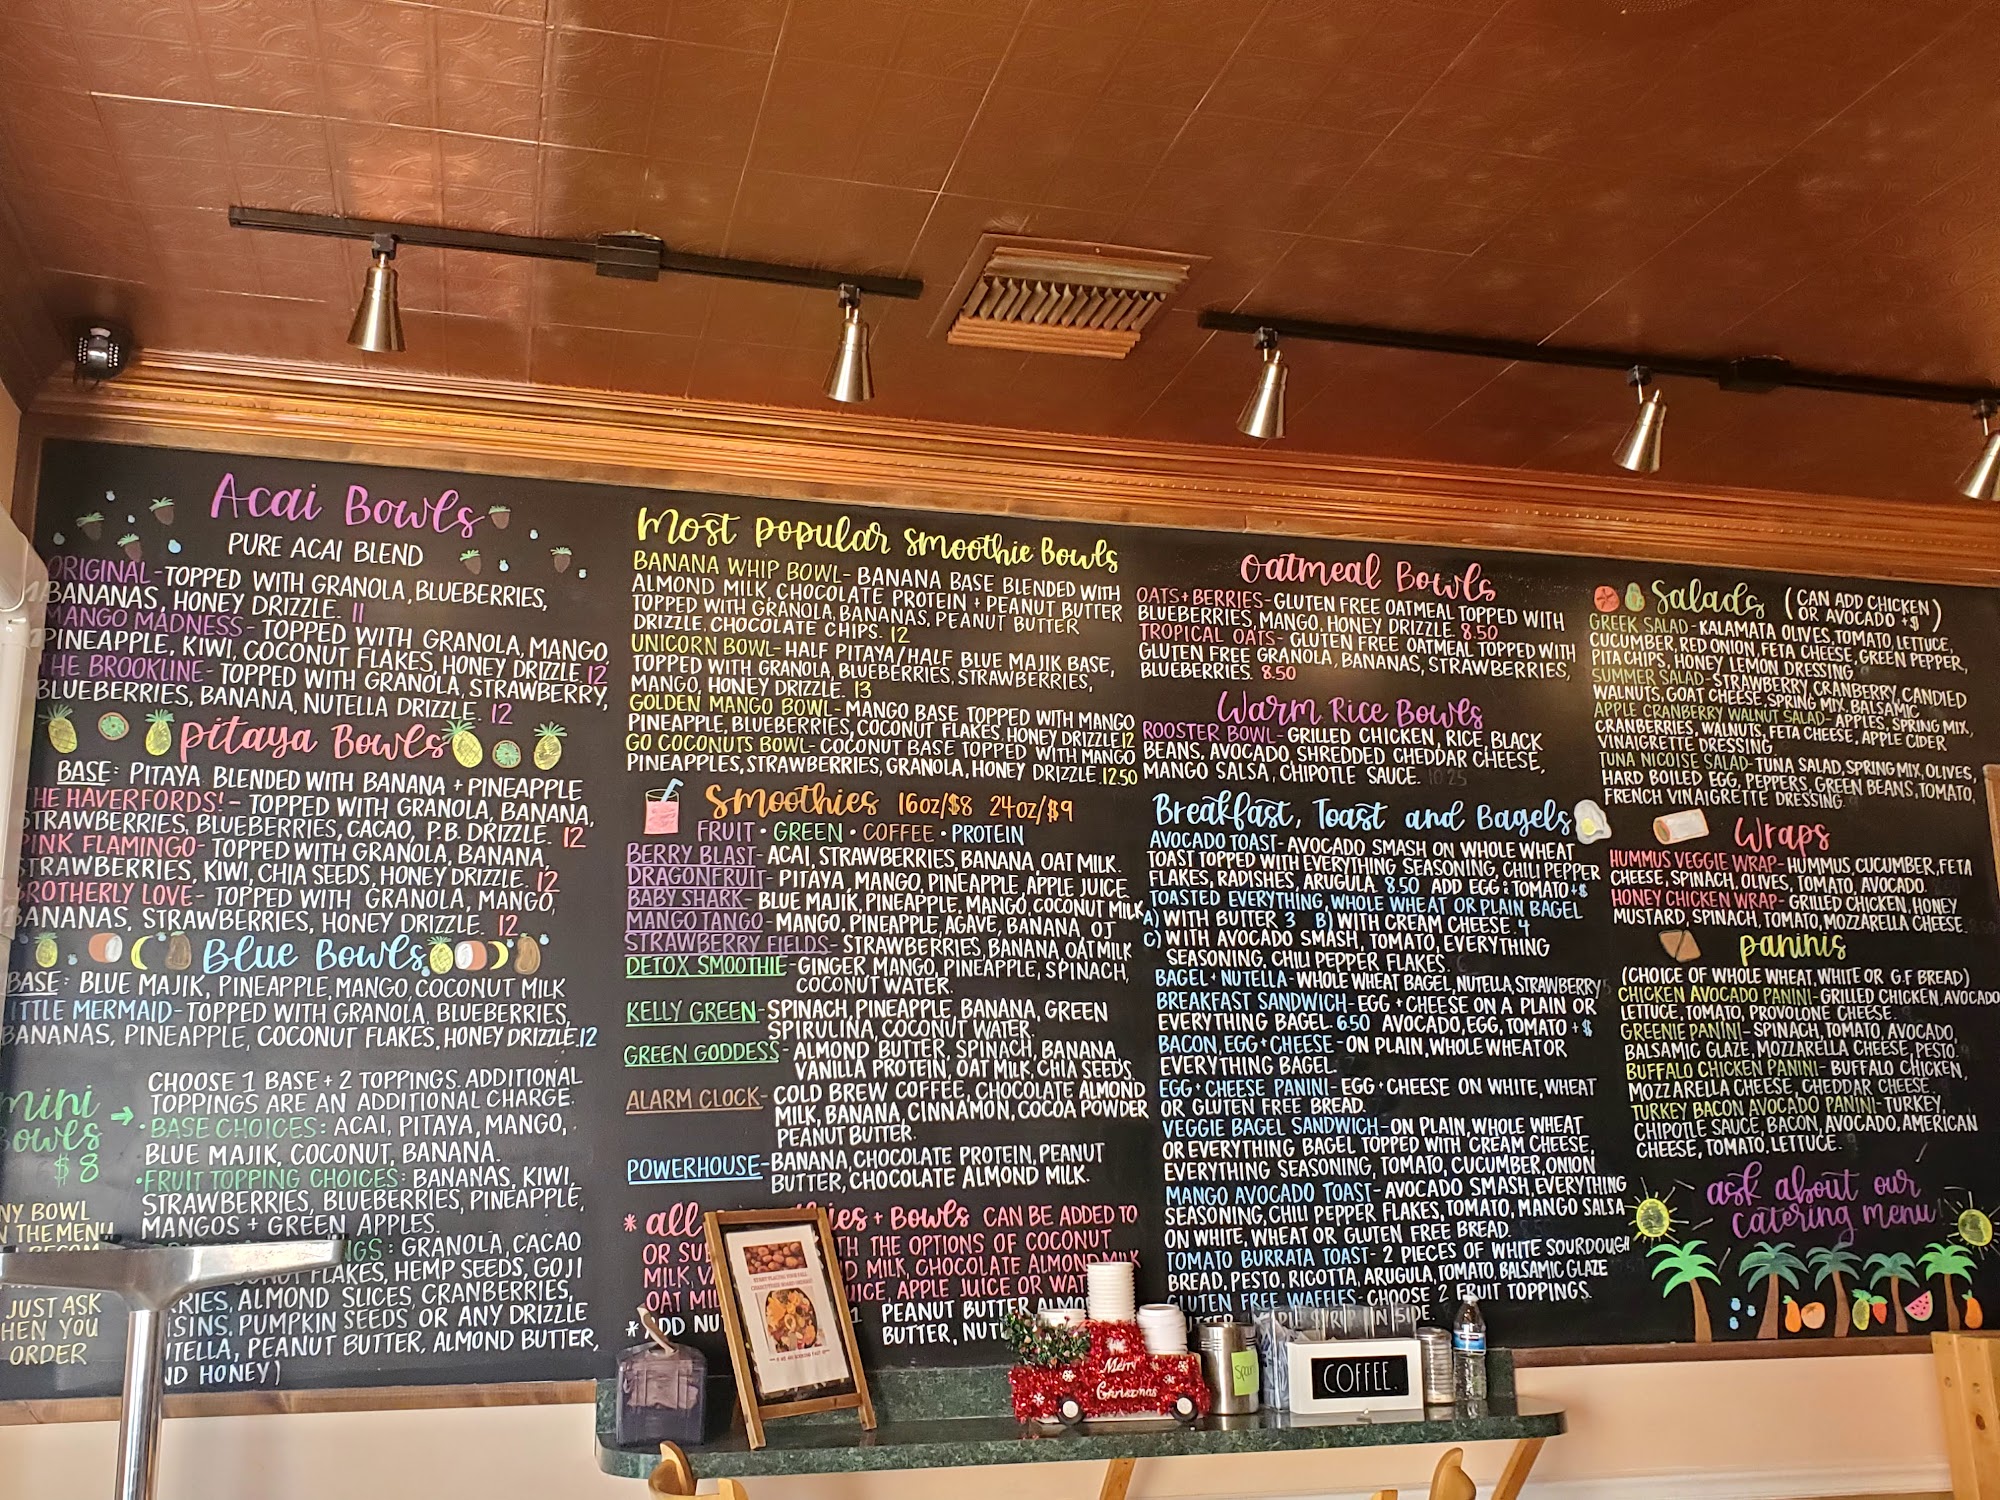 Acai Bowls
PURE ACAI BLEND
ORIGINAL-TOPPED WITH GRANOLA, BLUEBERRIES,
BANANAS, HONEY DRIZZLE. 11
MANGO MADNESS- TOPPED WITH GRANOLA, MANGO,
PINEAPPLE, KIWI, COCONUT FLAKES, HONEY DRIZZLE 12
THE BROOKLINE- TOPPED WITH GRANOLA, STRAWBERRY,
BLUEBERRIES, BANANA, NUTELLA DRIZZLE. 12
Pitaya Bowls
BASE: PITAYA BLENDED WITH BANANA + PINEAPPLE
THE HAVERFORDS!- TOPPED WITH GRANOLA, BANANA,
STRAWBERRIES, BLUEBERRIES, CACAO, P.B. DRIZZLE. 12
PINK FLAMINGO- TOPPED WITH GRANOLA, BANANA,
STRAWBERRIES, KIWI, CHIA SEEDS, HONEY DRIZZLE. 12
BROTHERLY LOVE- TOPPED WITH GRANOLA, MANGO,
BANANAS, STRAWBERRIES, HONEY DRIZZLE. 12
Blue Bowls
BASE: BLUE MAJIK, PINEAPPLE, MANGO, COCONUT MILK
LITTLE MERMAID- TOPPED WITH GRANOLA, BLUEBERRIES,
BANANAS, PINEAPPLE, COCONUT FLAKES, HONEY DRIZZLE.12
mini
Bowls
$8
CHOOSE 1 BASE + 2 TOPPINGS. ADDITIONAL
TOPPINGS ARE AN ADDITIONAL CHARGE.
• BASE CHOICES: ACAI, PITAYA, MANGO,
BLUE MAJIK, COCONUT, BANANA.
• FRUIT TOPPING CHOICES: BANANAS, KIWI,
STRAWBERRIES, BLUEBERRIES, PINEAPPLE,
MANGOS + GREEN APPLES.
GRANOLA, CACAO
FLAKES, HEMP SEEDS, GOJI
ALMOND SLICES, CRANBERRIES,
PUMPKIN SEEDS OR ANY DRIZZLE
PEANUT BUTTER, ALMOND BUTTER,
HONEY)
BOWL
THE MENU
JUST ASK
YOU
ORDER
Most popular smoothie Bowls
BANANA WHIP BOWL- BANANA BASE BLENDED WITH
ALMOND MILK, CHOCOLATE PROTEIN + PEANUT BUTTER
TOPPED WITH GRANOLA, BANANAS, PEANUT BUTTER
DRIZZLE, CHOCOLATE CHIPS. 12
UNICORN BOWL- HALF PITAYA/HALF BLUE MAJIK BASE,
TOPPED WITH GRANOLA, BLUEBERRIES, STRAWBERRIES,
MANGO, HONEY DRIZZLE. 13
GOLDEN MANGO BOWL- MANGO BASE TOPPED WITH MANGO
PINEAPPLE, BLUEBERRIES, COCONUT FLAKES, HONEY DRIZZLE.12
GO COCONUTS BOWL- COCONUT BASE TOPPED WITH MANGO
PINEAPPLES, STRAWBERRIES, GRANOLA, HONEY DRIZZLE. 12.50
Smoothies 16oz/$8 24oz/$9
FRUIT • GREEN • COFFEE • PROTEIN
BERRY BLAST- ACAI, STRAWBERRIES, BANANA, OAT MILK.
DRAGONFRUIT- PITAYA, MANGO, PINEAPPLE, APPLE JUICE
BABY SHARK- BLUE MAJIK, PINEAPPLE, MANGO, COCONUT MILK
MANGO TANGO- MANGO, PINEAPPLE, AGAVE, BANANA, OJ
STRAWBERRY FIELDS- STRAWBERRIES, BANANA, OAT MILK
DETOX SMOOTHIE- GINGER, MANGO, PINEAPPLE, SPINACH,
COCONUT WATER.
KELLY GREEN- SPINACH, PINEAPPLE, BANANA, GREEN
SPIRULINA, COCONUT WATER.
GREEN GODDESS- ALMOND BUTTER, SPINACH, BANANA,
VANILLA PROTEIN, OAT MILK, CHIA SEEDS.
ALARM CLOCK- COLD BREW COFFEE, CHOCOLATE ALMOND
MILK, BANANA, CINNAMON, COCOA POWDER
PEANUT BUTTER.
POWERHOUSE- BANANA, CHOCOLATE PROTEIN, PEANUT
BUTTER, CHOCOLATE ALMOND MILK.
* all + Bowls CAN BE ADDED TO
OR THE OPTIONS OF COCONUT
MILK, MILK, CHOCOLATE ALMOND MILK
OAT APPLE JUICE OR
* PEANUT BUTTER,
BUTTER,
Oatmeal Bowls
OATS + BERRIES- GLUTEN FREE OATMEAL TOPPED WITH
BLUEBERRIES, MANGO, HONEY DRIZZLE. 8.50
TROPICAL OATS- GLUTEN FREE OATMEAL TOPPED WITH
GLUTEN FREE GRANOLA, BANANAS, STRAWBERRIES,
BLUEBERRIES. 8.50
Warm Rice Bowls
ROOSTER BOWL- GRILLED CHICKEN, RICE, BLACK
BEANS, AVOCADO, SHREDDED CHEDDAR CHEESE,
MANGO SALSA, CHIPOTLE SAUCE. 10.25
Breakfast, Toast and Bagels
AVOCADO TOAST- AVOCADO SMASH ON WHOLE WHEAT
TOAST TOPPED WITH EVERYTHING SEASONING, CHILI PEPPER
FLAKES, RADISHES, ARUGULA. 8.50 ADD EGG + TOMATO +$
TOASTED EVERYTHING, WHOLE WHEAT OR PLAIN BAGEL
A) WITH BUTTER 3 B) WITH CREAM CHEESE. 4
C) WITH AVOCADO SMASH, TOMATO, EVERYTHING
SEASONING, CHILI PEPPER FLAKES.
BAGEL + NUTELLA- WHOLE WHEAT BAGEL, NUTELLA, STRAWBERRY
BREAKFAST SANDWICH- EGG + CHEESE ON A PLAIN OR
EVERYTHING BAGEL. 6.50 AVOCADO, EGG, TOMATO +$
BACON, EGG + CHEESE- ON PLAIN, WHOLE WHEAT OR
EVERYTHING BAGEL.
EGG + CHEESE PANINI- EGG + CHEESE ON WHITE, WHEAT
OR GLUTEN FREE BREAD.
VEGGIE BAGEL SANDWICH- ON PLAIN, WHOLE WHEAT
OR EVERYTHING BAGEL TOPPED WITH CREAM CHEESE,
EVERYTHING SEASONING, TOMATO, CUCUMBER, ONION
MANGO AVOCADO TOAST- AVOCADO SMASH, EVERYTHING
SEASONING, CHILI PEPPER FLAKES, TOMATO, MANGO SALSA
ON WHITE, WHEAT OR GLUTEN FREE BREAD.
TOMATO BURRATA TOAST- 2 PIECES OF WHITE SOURDOUGH
BREAD, PESTO, RICOTTA, ARUGULA, TOMATO, BALSAMIC GLAZE
GLUTEN FREE WAFFLES- CHOOSE 2 FRUIT TOPPINGS.
SIDE.
Salads (CAN ADD CHICKEN
OR AVOCADO +$)
GREEK SALAD- KALAMATA OLIVES, TOMATO, LETTUCE,
CUCUMBER, RED ONION, FETA CHEESE, GREEN PEPPER,
PITA CHIPS, HONEY LEMON DRESSING
SUMMER SALAD- STRAWBERRY, CRANBERRY, CANDIED
WALNUTS, GOAT CHEESE, SPRING MIX, BALSAMIC
APPLE CRANBERRY WALNUT SALAD- APPLES, SPRING MIX,
CRANBERRIES, WALNUTS, FETA CHEESE, APPLE CIDER
VINAIGRETTE DRESSING.
TUNA NICOISE SALAD- TUNA SALAD, SPRING MIX, OLIVES,
HARD BOILED EGG, PEPPERS, GREEN BEANS, TOMATO,
FRENCH VINAIGRETTE DRESSING.
Wraps
HUMMUS VEGGIE WRAP- HUMMUS, CUCUMBER, FETA
CHEESE, SPINACH, OLIVES, TOMATO, AVOCADO.
HONEY CHICKEN WRAP- GRILLED CHICKEN, HONEY
MUSTARD, SPINACH, TOMATO, MOZZARELLA CHEESE.
paninis
(CHOICE OF WHOLE WHEAT, WHITE OR G.F BREAD)
CHICKEN AVOCADO PANINI- GRILLED CHICKEN, AVOCADO
LETTUCE, TOMATO, PROVOLONE CHEESE.
GREENIE PANINI- SPINACH, TOMATO, AVOCADO,
BALSAMIC GLAZE, MOZZARELLA CHEESE, PESTO
BUFFALO CHICKEN PANINI- BUFFALO CHICKEN,
MOZZARELLA CHEESE, CHEDDAR CHEESE
TURKEY BACON AVOCADO PANINI- TURKEY,
CHIPOTLE SAUCE, BACON, AVOCADO, AMERICAN
CHEESE, TOMATO, LETTUCE.
ask about our
catering menu
Merry
Christmas
COFFEE.